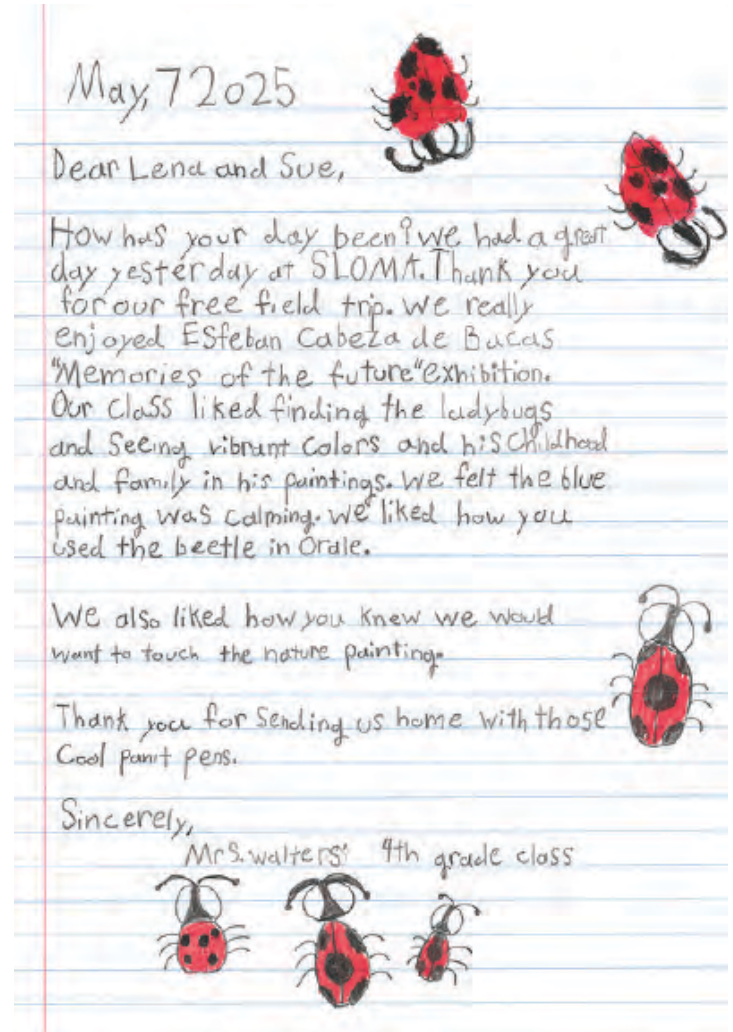 May, 7 2025
Dear Lena and Sue,
How has your day been? we had a great
day yesterday at SLOMA. Thank you
for our free field trip. We really
enjoyed Esteban Cabeza de Bacas
"Memories of the future" exhibition.
Our Class liked finding the ladybugs
and Seeing vibrant Colors and his Childhood
and family in his paintings. We felt the blue
painting was calming. we liked how you
used the beetle in Orale.
We also liked how you knew we would
want to touch the nature painting.
Thank you for Sending us home with those
Cool panit pens.
Sincerely,
Mrs. walters' 4th grade class